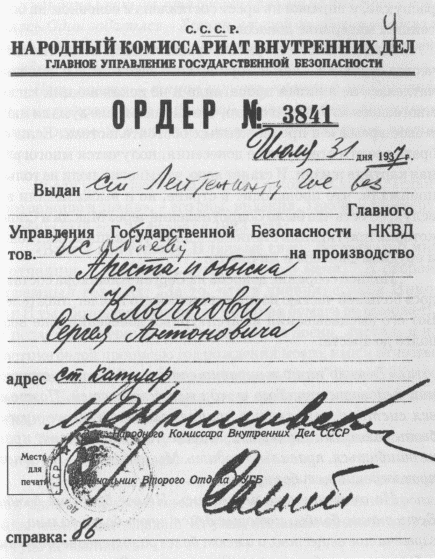 4
С. С. С. Р.
НАРОДНЫЙ КОМИССАРИАТ ВНУТРЕННИХ ДЕЛ
ГЛАВНОЕ УПРАВЛЕНИЕ ГОСУДАРСТВЕННОЙ БЕЗОПАСНОСТИ
ОРДЕР № 3841
Июля 31 дня 1937 г.
Выдан Лейтенанту Гос без
Главного
Управления Государственной Безопасности НКВД
тов. на производство
Ареста и обыска
Клычкова
Сергея Антоновича
адрес ст. Катуар
Народного Комиссара Внутренних Дел СССР
Место
для
печати
Начальник Второго Отдела ГУГБ
справка: 86